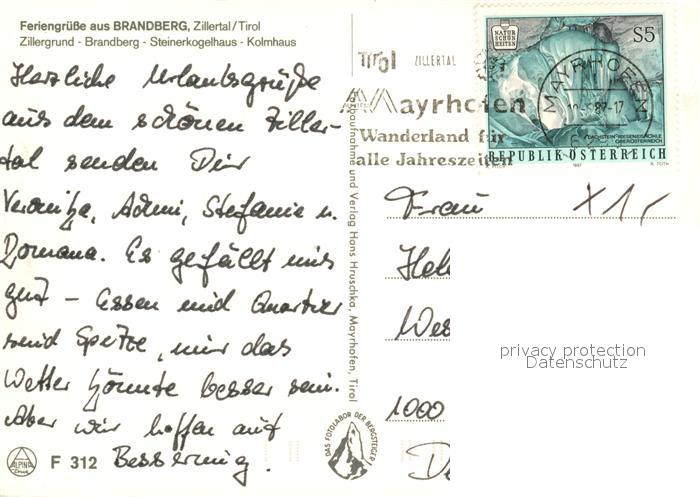 Feriengrüße aus BRANDBERG, Zillertal/Tirol
Zillergrund - Brandberg - Steinerkogelhaus - Kolmhaus
Herzliche Urlaubsgrüße
aus dem schönen Ziller-
tal senden Dir
Veronika, Admi, Stefanie u.
Romana. Es gefällt uns
gut – Essen und Quartier
sind Spitze, nur das
Wetter könnte besser sein.
Aber wir hoffen auf
Besserung.
ALPINA
F 312
DAS FOTOLABOR DER BERGSTEIGER
Farbaufnahme und Verlag Hans Hruschka, Mayrhofen, Tirol
Tirol ZILLERTAL
Mayrhofen
Wanderland für
alle Jahreszeiten
MAYRHOFEN
87-17
NATUR
SCHÖN
HEITEN
S5
DACHSTEIN-RIESENEISHÖHLE
OBERÖSTERREICH
REPUBLIK ÖSTERREICH
1987
A. TOTH
X1,-
Frau
Hel
Wes
1000
privacy protection
Datenschutz